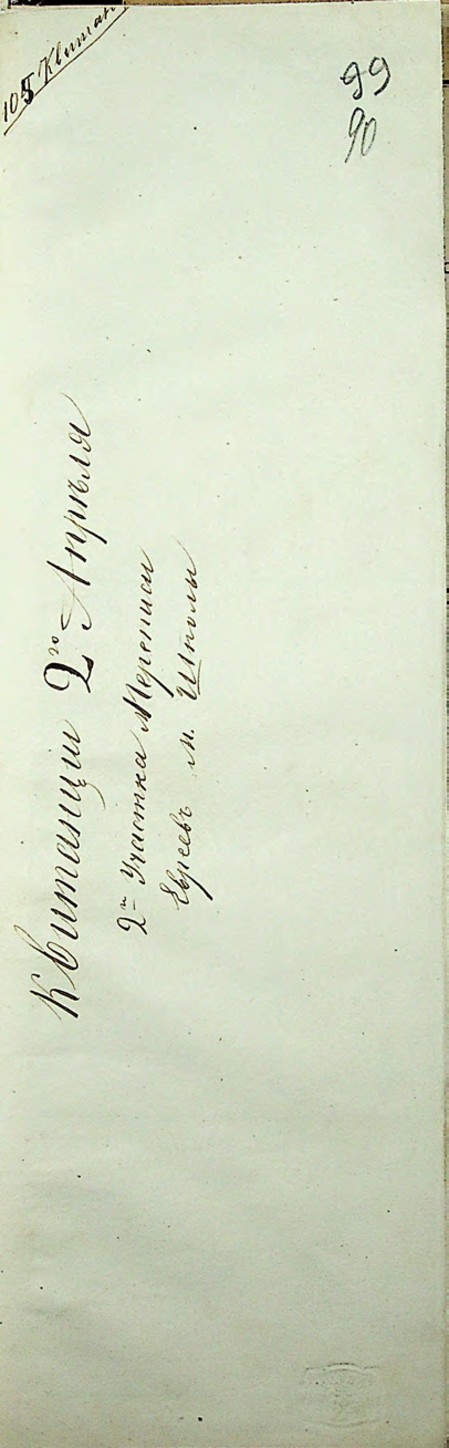 105 Квитан
99
90
Квитанции 2го Апрѣля
2го Участка Переписи
Евреевъ м. Шполы